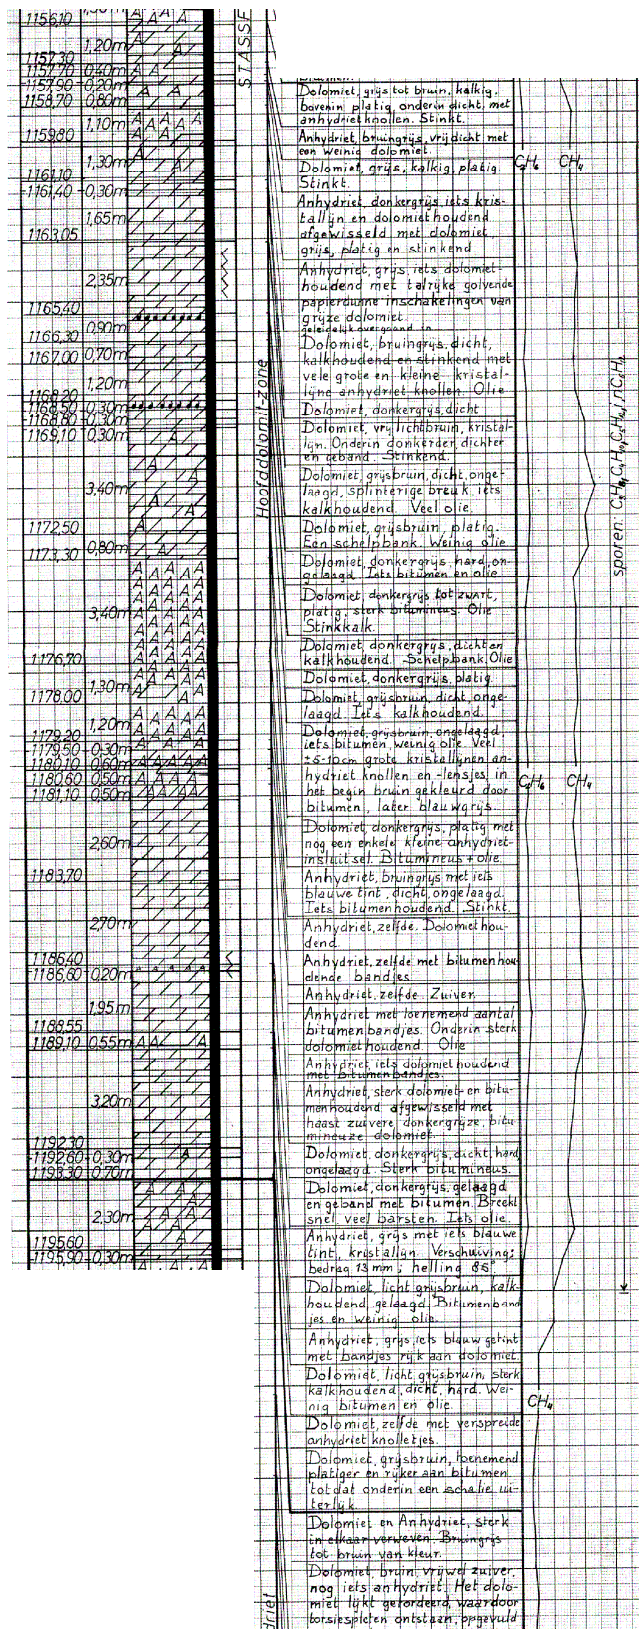 1156,10
1,20m
1157,30
1157,70 0,40m
1157,90 0,20m
1158,70 0,80m
1,10m
1159,80
1,30m
1161,10
1161,40 0,30m
1,65m
1163,05
2,35m
1165,40
0,90m
1166,30
1167,00 0,70m
1,20m
1168,20
1168,50 0,30m
1168,80 0,30m
1169,10 0,30m
3,40m
1172,50
1173,30 0,80m
3,40m
1176,70
1,30m
1178,00
1,20m
1179,20
1179,50 0,30m
1180,10 0,60m
1180,60 0,50m
1181,10 0,50m
2,60m
1183,70
2,70m
1186,40
1186,60 0,20m
1,95m
1188,55
1189,10 0,55m
3,20m
1192,30
1192,60 0,30m
1193,30 0,70m
2,30m
1195,60
1195,90 0,30m
STASSF
Hoofddolomit-zone
driet
Dolomiet, grijs tot bruin, kalkig,
bovenin platig, onderin dicht, met
anhydriet knollen. Stinkt.
Anhydriet, bruingrijs, vrij dicht met
een weinig dolomiet.
Dolomiet, grijs, kalkig, platig
Stinkt.
Anhydriet, donkergrijs, iets kris-
tallijn en dolomiethoudend
afgewisseld met dolomiet
grijs, platig en stinkend
Anhydriet, grijs, iets dolomiet-
houdend met talrijke golvende
papierdunne inschakelingen van
grijze dolomiet.
geleidelijk overgaand in
Dolomiet, bruingrijs, dicht,
kalkhoudend en stinkend met
vele grote en kleine kristal-
lijne anhydriet knollen Olie
Dolomiet, donkergrijs, dicht
Dolomiet, vrij lichtbruin, kristal-
lijn. Onderin donkerder, dichter
en geband. Stinkend.
Dolomiet, grijsbruin, dicht, onge-
laagd, splinterige breuk, iets
kalkhoudend. Veel olie.
Dolomiet, grijsbruin, platig.
Een schelpbank. Weinig olie
Dolomiet, donkergrijs, hard, on-
gelaagd. Iets bitumen en olie
Dolomiet, donkergrijs tot zwart,
platig, sterk bitumineus. Olie
Stinkkalk.
Dolomiet, donkergrijs, dicht en
kalkhoudend. Schelpbank. Olie
Dolomiet, donkergrijs, platig.
Dolomiet, grijsbruin, dicht, onge-
laagd. Iets kalkhoudend.
Dolomiet, grijsbruin, ongelaagd,
iets bitumen, weinig olie. Veel
±5-10cm grote kristallijnen an-
hydriet knollen en -lensjes, in
het begin bruin gekleurd door
bitumen, later blauwgrijs.
Dolomiet, donkergrijs, platig met
nog een enkele kleine anhydriet-
insluitsel. Bitumineus + olie.
Anhydriet, bruingrijs met iets
blauwe tint, dicht, ongelaagd.
Iets bitumenhoudend. Stinkt.
Anhydriet, zelfde. Dolomiethou-
dend.
Anhydriet, zelfde met bitumenhou-
dende bandjes
Anhydriet, zelfde. Zuiver.
Anhydriet met toenemend aantal
bitumenbandjes. Onderin sterk
dolomiethoudend. Olie
Anhydriet, iets dolomiethoudend
met bitumenbandjes.
Anhydriet, sterk dolomiet- en bitu-
menhoudend afgewisseld met
haast zuivere, donkergrijze, bitu-
mineuze dolomiet.
Dolomiet, donkergrijs, dicht, hard,
ongelaagd. Sterk bitumineus.
Dolomiet, donkergrijs, gelaagd
en geband met bitumen. Breekt
snel, veel barsten. Iets olie.
Anhydriet, grijs met iets blauwe
tint, kristallijn. Verschuiving;
bedrag 13 mm; helling 85°
Dolomiet, licht grijsbruin, kalk-
houdend, gelaagd. Bitumenband
jes en weinig olie.
Anhydriet, grijs, iets blauw getint
met bandjes rijk aan dolomiet.
Dolomiet, licht grijsbruin, sterk
kalkhoudend, dicht, hard. Wei-
nig bitumen en olie.
Dolomiet, zelfde met verspreide
anhydriet knolletjes.
Dolomiet, grijsbruin, toenemend
platiger en rijker aan bitumen
totdat onderin een schalie ui-
terlijk.
Dolomiet en Anhydriet, sterk
in elkaar verweven. Bruingrijs
tot bruin van kleur.
Dolomiet, bruin, vrijwel zuiver,
nog iets anhydriet. Het dolo-
miet lijkt getordeerd, waardoor
torsiespleten ontstaan, opgevuld
C₂H₆ CH₄
C₂H₆ CH₄
CH₄
sporen: